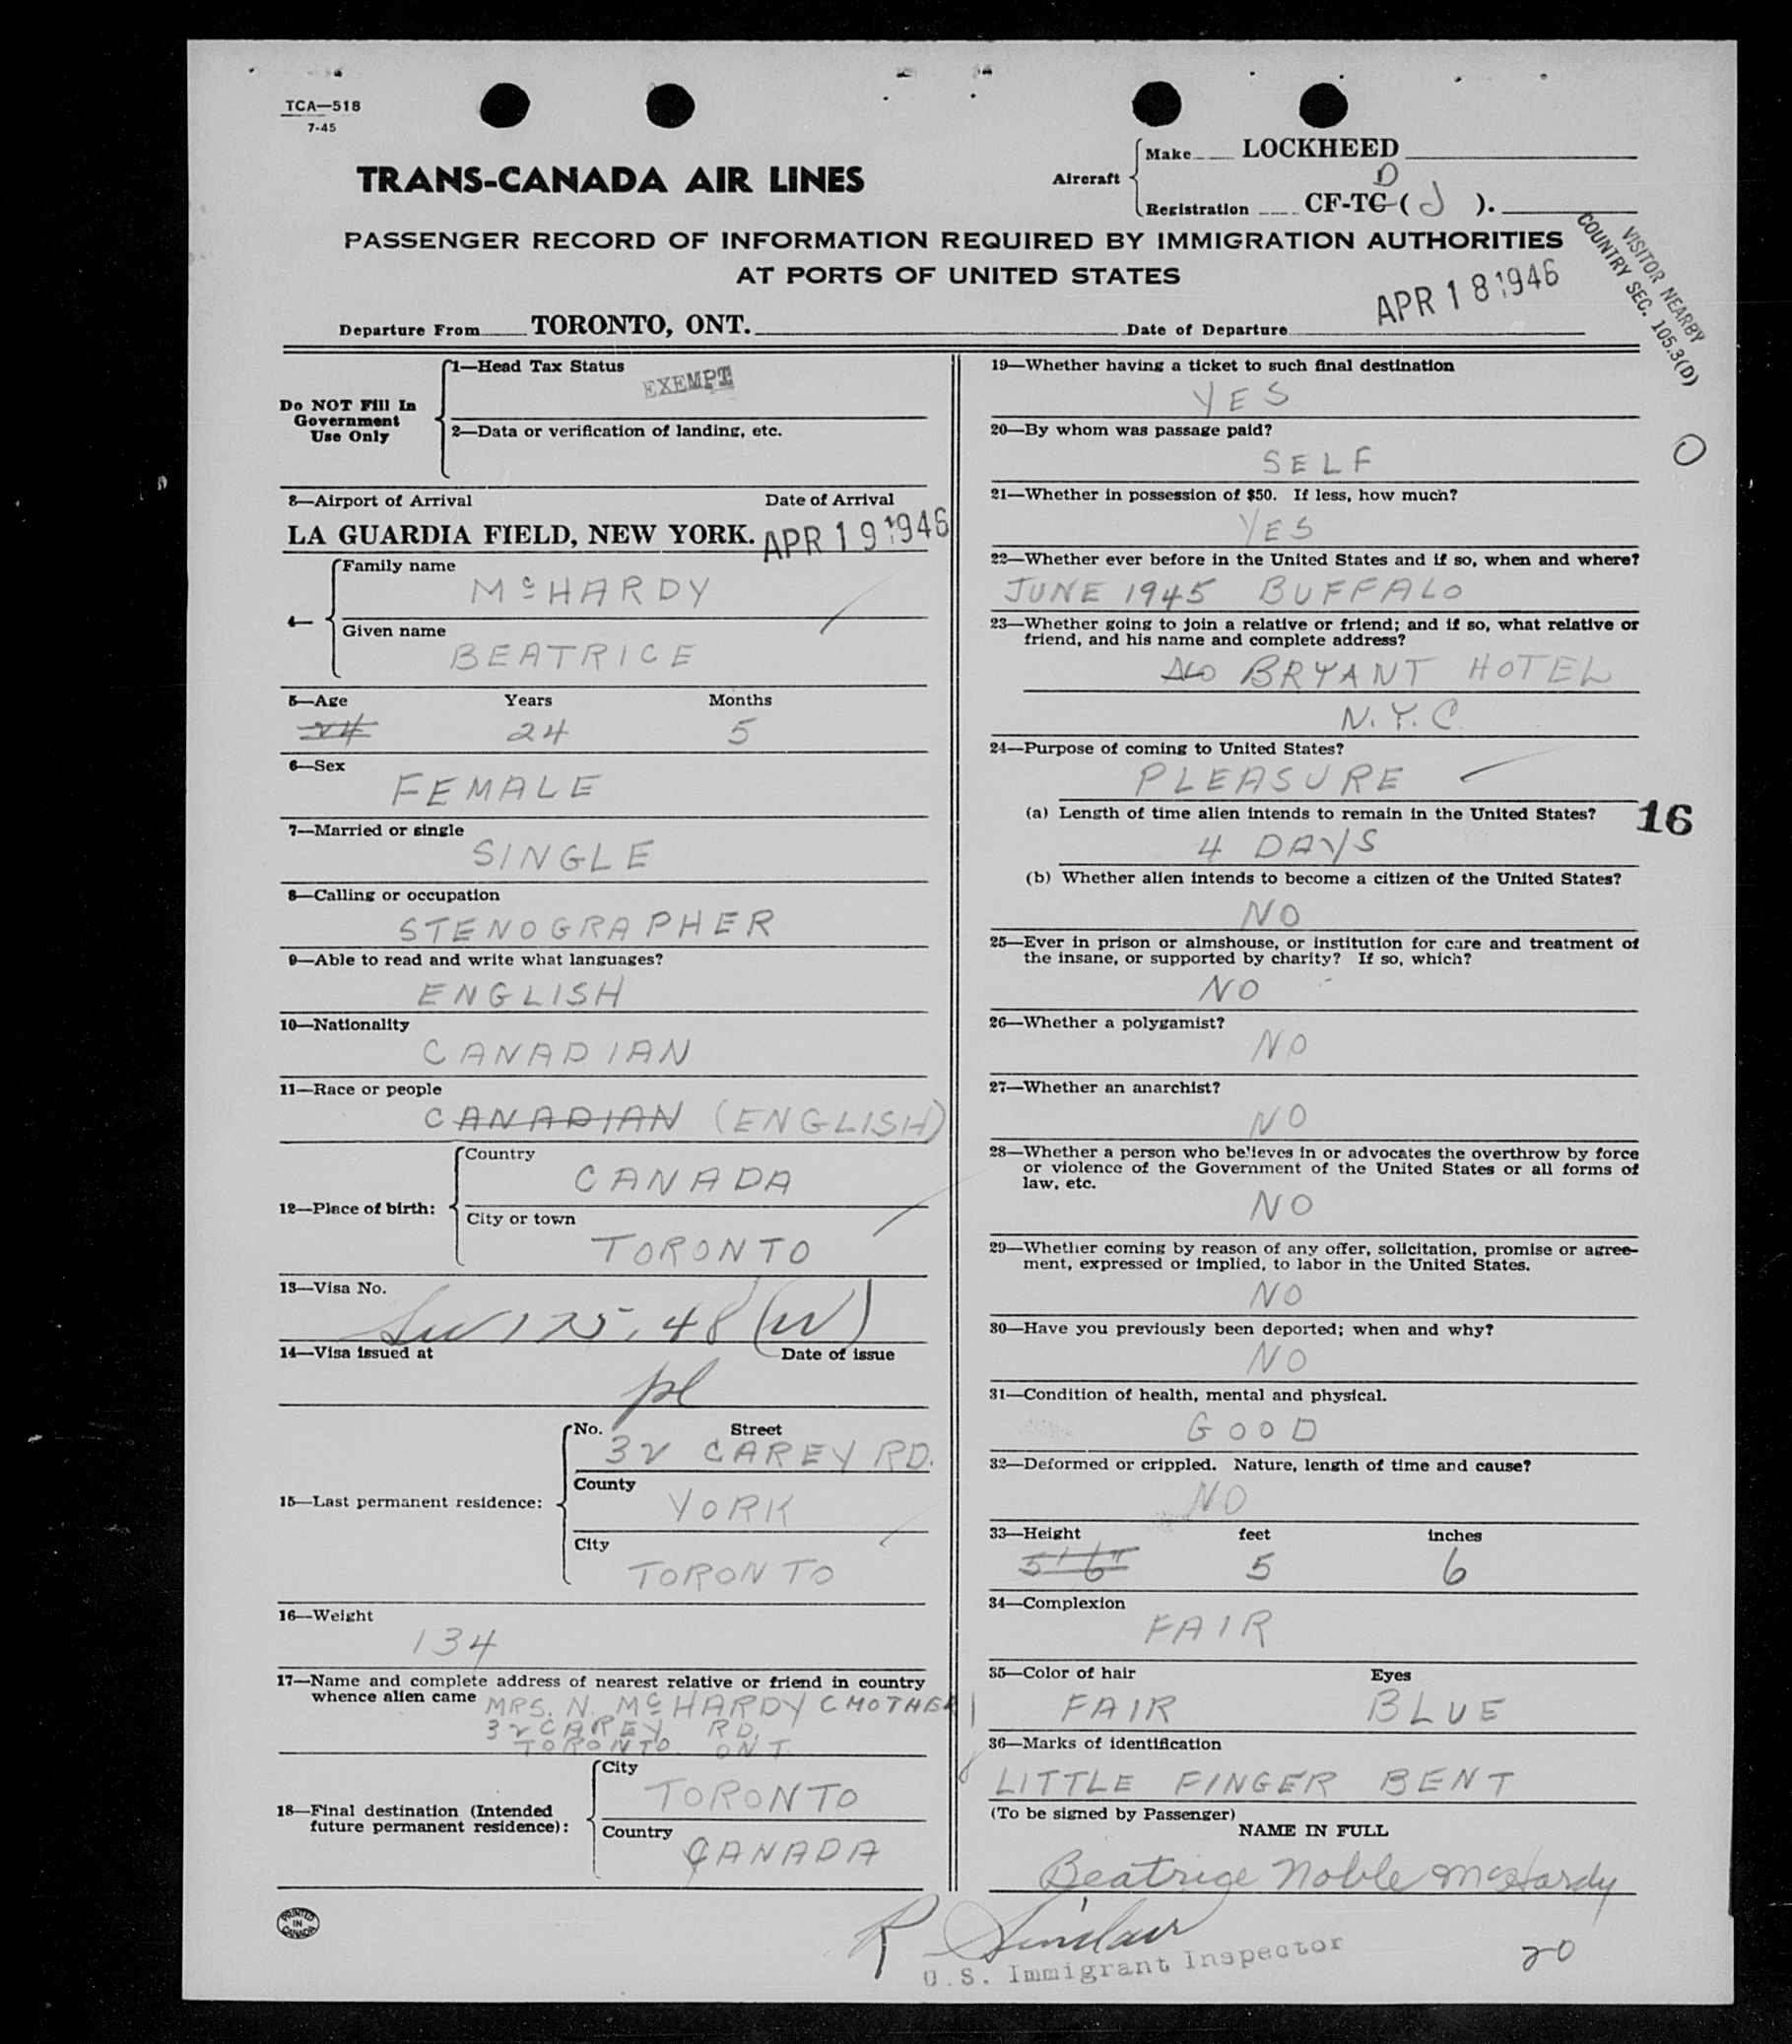 TCA—518
7-45
TRANS-CANADA AIR LINES
Aircraft
Make LOCKHEED
D
Registration CF-TC ( J ).
PASSENGER RECORD OF INFORMATION REQUIRED BY IMMIGRATION AUTHORITIES
AT PORTS OF UNITED STATES
VISITOR NEARBY
COUNTRY SEC. 105.3(D)
Departure From TORONTO, ONT. Date of Departure APR 18 1946
Do NOT Fill In
Government
Use Only
1—Head Tax Status
EXEMPT
2—Data or verification of landing, etc.
3—Airport of Arrival Date of Arrival
LA GUARDIA FIELD, NEW YORK. APR 19 1946
4—
Family name
McHARDY
Given name
BEATRICE
5—Age Years Months
24 24 5
6—Sex
FEMALE
7—Married or single
SINGLE
8—Calling or occupation
STENOGRAPHER
9—Able to read and write what languages?
ENGLISH
10—Nationality
CANADIAN
11—Race or people
CANADIAN (ENGLISH)
12—Place of birth:
Country
CANADA
City or town
TORONTO
13—Visa No.
175.48 (W)
14—Visa issued at Date of issue
pl
15—Last permanent residence:
No. Street
32 CAREY RD.
County
YORK
City
TORONTO
16—Weight
134
17—Name and complete address of nearest relative or friend in country
whence alien came MRS. N. McHARDY (MOTHER)
32 CAREY RD.
TORONTO ONT.
18—Final destination (Intended
future permanent residence):
City
TORONTO
Country
CANADA
19—Whether having a ticket to such final destination
YES
20—By whom was passage paid?
SELF
O
21—Whether in possession of $50. If less, how much?
YES
22—Whether ever before in the United States and if so, when and where?
JUNE 1945 BUFFALO
23—Whether going to join a relative or friend; and if so, what relative or
friend, and his name and complete address?
NO BRYANT HOTEL
N.Y.C.
24—Purpose of coming to United States?
PLEASURE
(a) Length of time alien intends to remain in the United States?
16
4 DAYS
(b) Whether alien intends to become a citizen of the United States?
NO
25—Ever in prison or almshouse, or institution for care and treatment of
the insane, or supported by charity? If so, which?
NO
26—Whether a polygamist?
NO
27—Whether an anarchist?
NO
28—Whether a person who believes in or advocates the overthrow by force
or violence of the Government of the United States or all forms of
law, etc.
NO
29—Whether coming by reason of any offer, solicitation, promise or agree-
ment, expressed or implied, to labor in the United States.
NO
30—Have you previously been deported; when and why?
NO
31—Condition of health, mental and physical.
GOOD
32—Deformed or crippled. Nature, length of time and cause?
NO
33—Height feet inches
5'6" 5 6
34—Complexion
FAIR
35—Color of hair Eyes
FAIR BLUE
36—Marks of identification
LITTLE FINGER BENT
(To be signed by Passenger)
NAME IN FULL
Beatrice Noble McHardy
PRINTED
IN
CANADA
R Sinclair
U.S. Immigrant Inspector
20